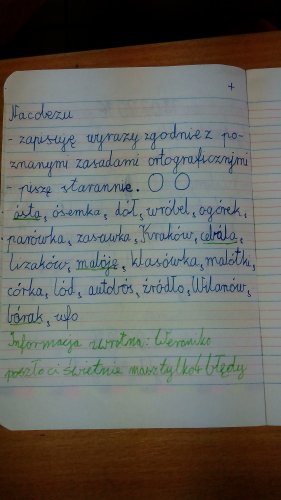 +
Nacobezu
- zapisuję wyrazy zgodnie z po-
znanymi zasadami ortograficznymi
- piszę starannie.
ósta, ósemka, dół, wróbel, ogórek,
parówka, zasuwka, Kraków, cebóla,
malóje, klasówka, malótki,
córka, lód, autobós, źródło, Wilanów,
bórak, ufo
Informacja zwrotna: Weroniko
poszło ci świetnie masz tylko 4 błędy